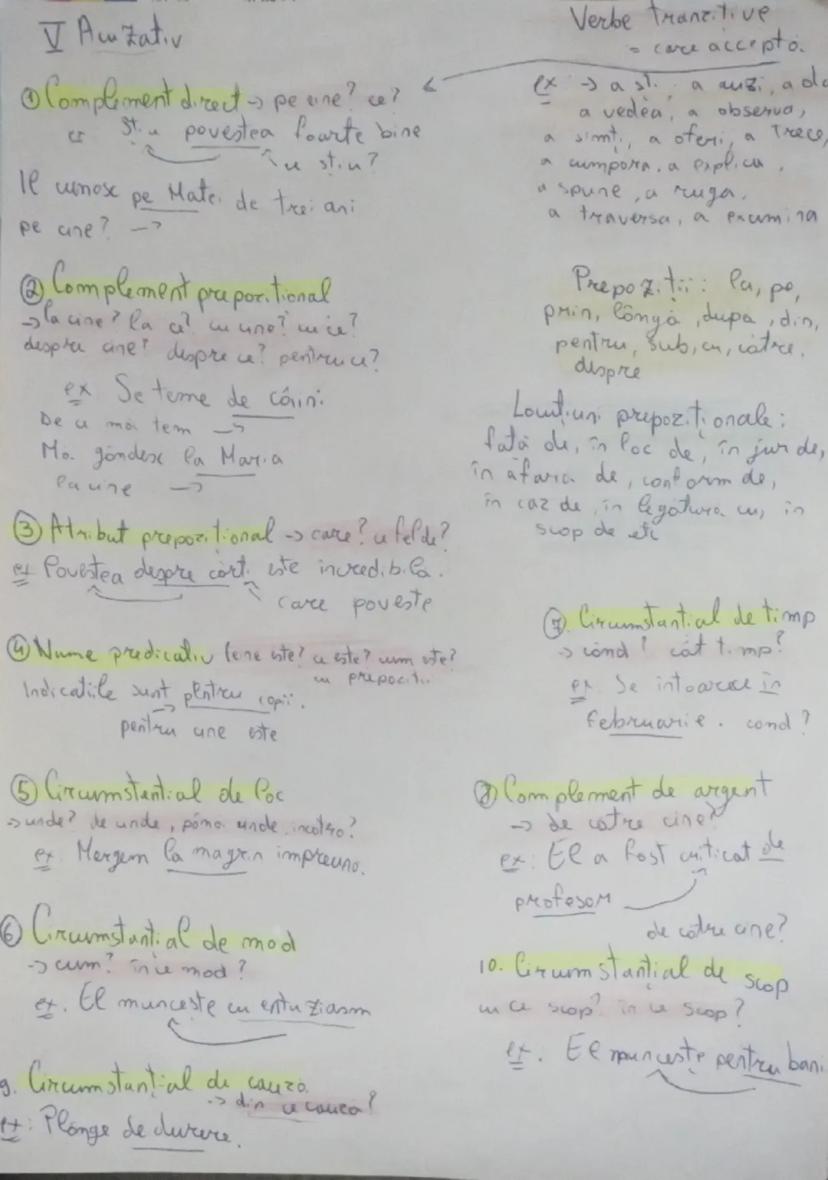 V Acuzativ
① Complement direct → pe cine? ce?
ex Știu povestea foarte bine
ce știu?
Îl cunosc pe Matei de trei ani
pe cine? →
② Complement prepozițional
→ la cine? la ce? cu cine? cu ce?
despre cine? despre ce? pentru ce?
ex Se teme de câini
De ce mă tem →
Mă gândesc la Maria
la cine →
③ Atribut prepozițional → care? ce fel de?
ex Povestea despre cărți este incredibilă.
care poveste
④ Nume predicativ (cine este? ce este? cum este?
cu prepoziții
Indicațiile sunt pentru copii.
pentru cine este
⑤ Circumstanțial de loc
→ unde? de unde, până unde, încotro?
ex Mergem la magazin împreună.
⑥ Circumstanțial de mod
→ cum? în ce mod?
ex. El muncește cu entuziasm
9. Circumstanțial de cauză
→ din ce cauză?
ex: Plânge de durere.
Verbe tranzitive
= care acceptă.
ex → a ști, a auzi, a da
a vedea, a observa,
a simți, a oferi, a trece,
a cumpăra, a explica,
a spune, a ruga,
a traversa, a examina
Prepoziții: la, pe,
prin, lângă, după, din,
pentru, sub, cu, către,
despre
Locuțiuni prepoziționale:
față de, în loc de, în jur de,
în afară de, conform de,
în caz de, în legătură cu, în
scop de etc
⑦. Circumstanțial de timp
→ când? cât timp?
ex Se întoarce în
februarie. când?
⑧ Complement de argent
→ de către cine?
ex: El a fost criticat de
profesor
de către cine?
10. Circumstanțial de scop
cu ce scop? în ce scop?
ex. El muncește pentru bani